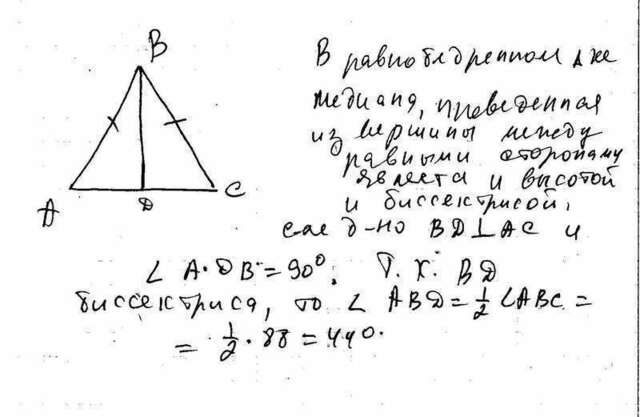 B
A
D
C
В равнобедренном △ке
медиана, проведенная
из вершины между
равными сторонами
является и высотой
и биссектрисой,
след-но BD⊥AC и
∠ A·DB=90°. Т.к. BD
биссектриса, то ∠ ABD=½∠ABC=
= ½·88=44°.